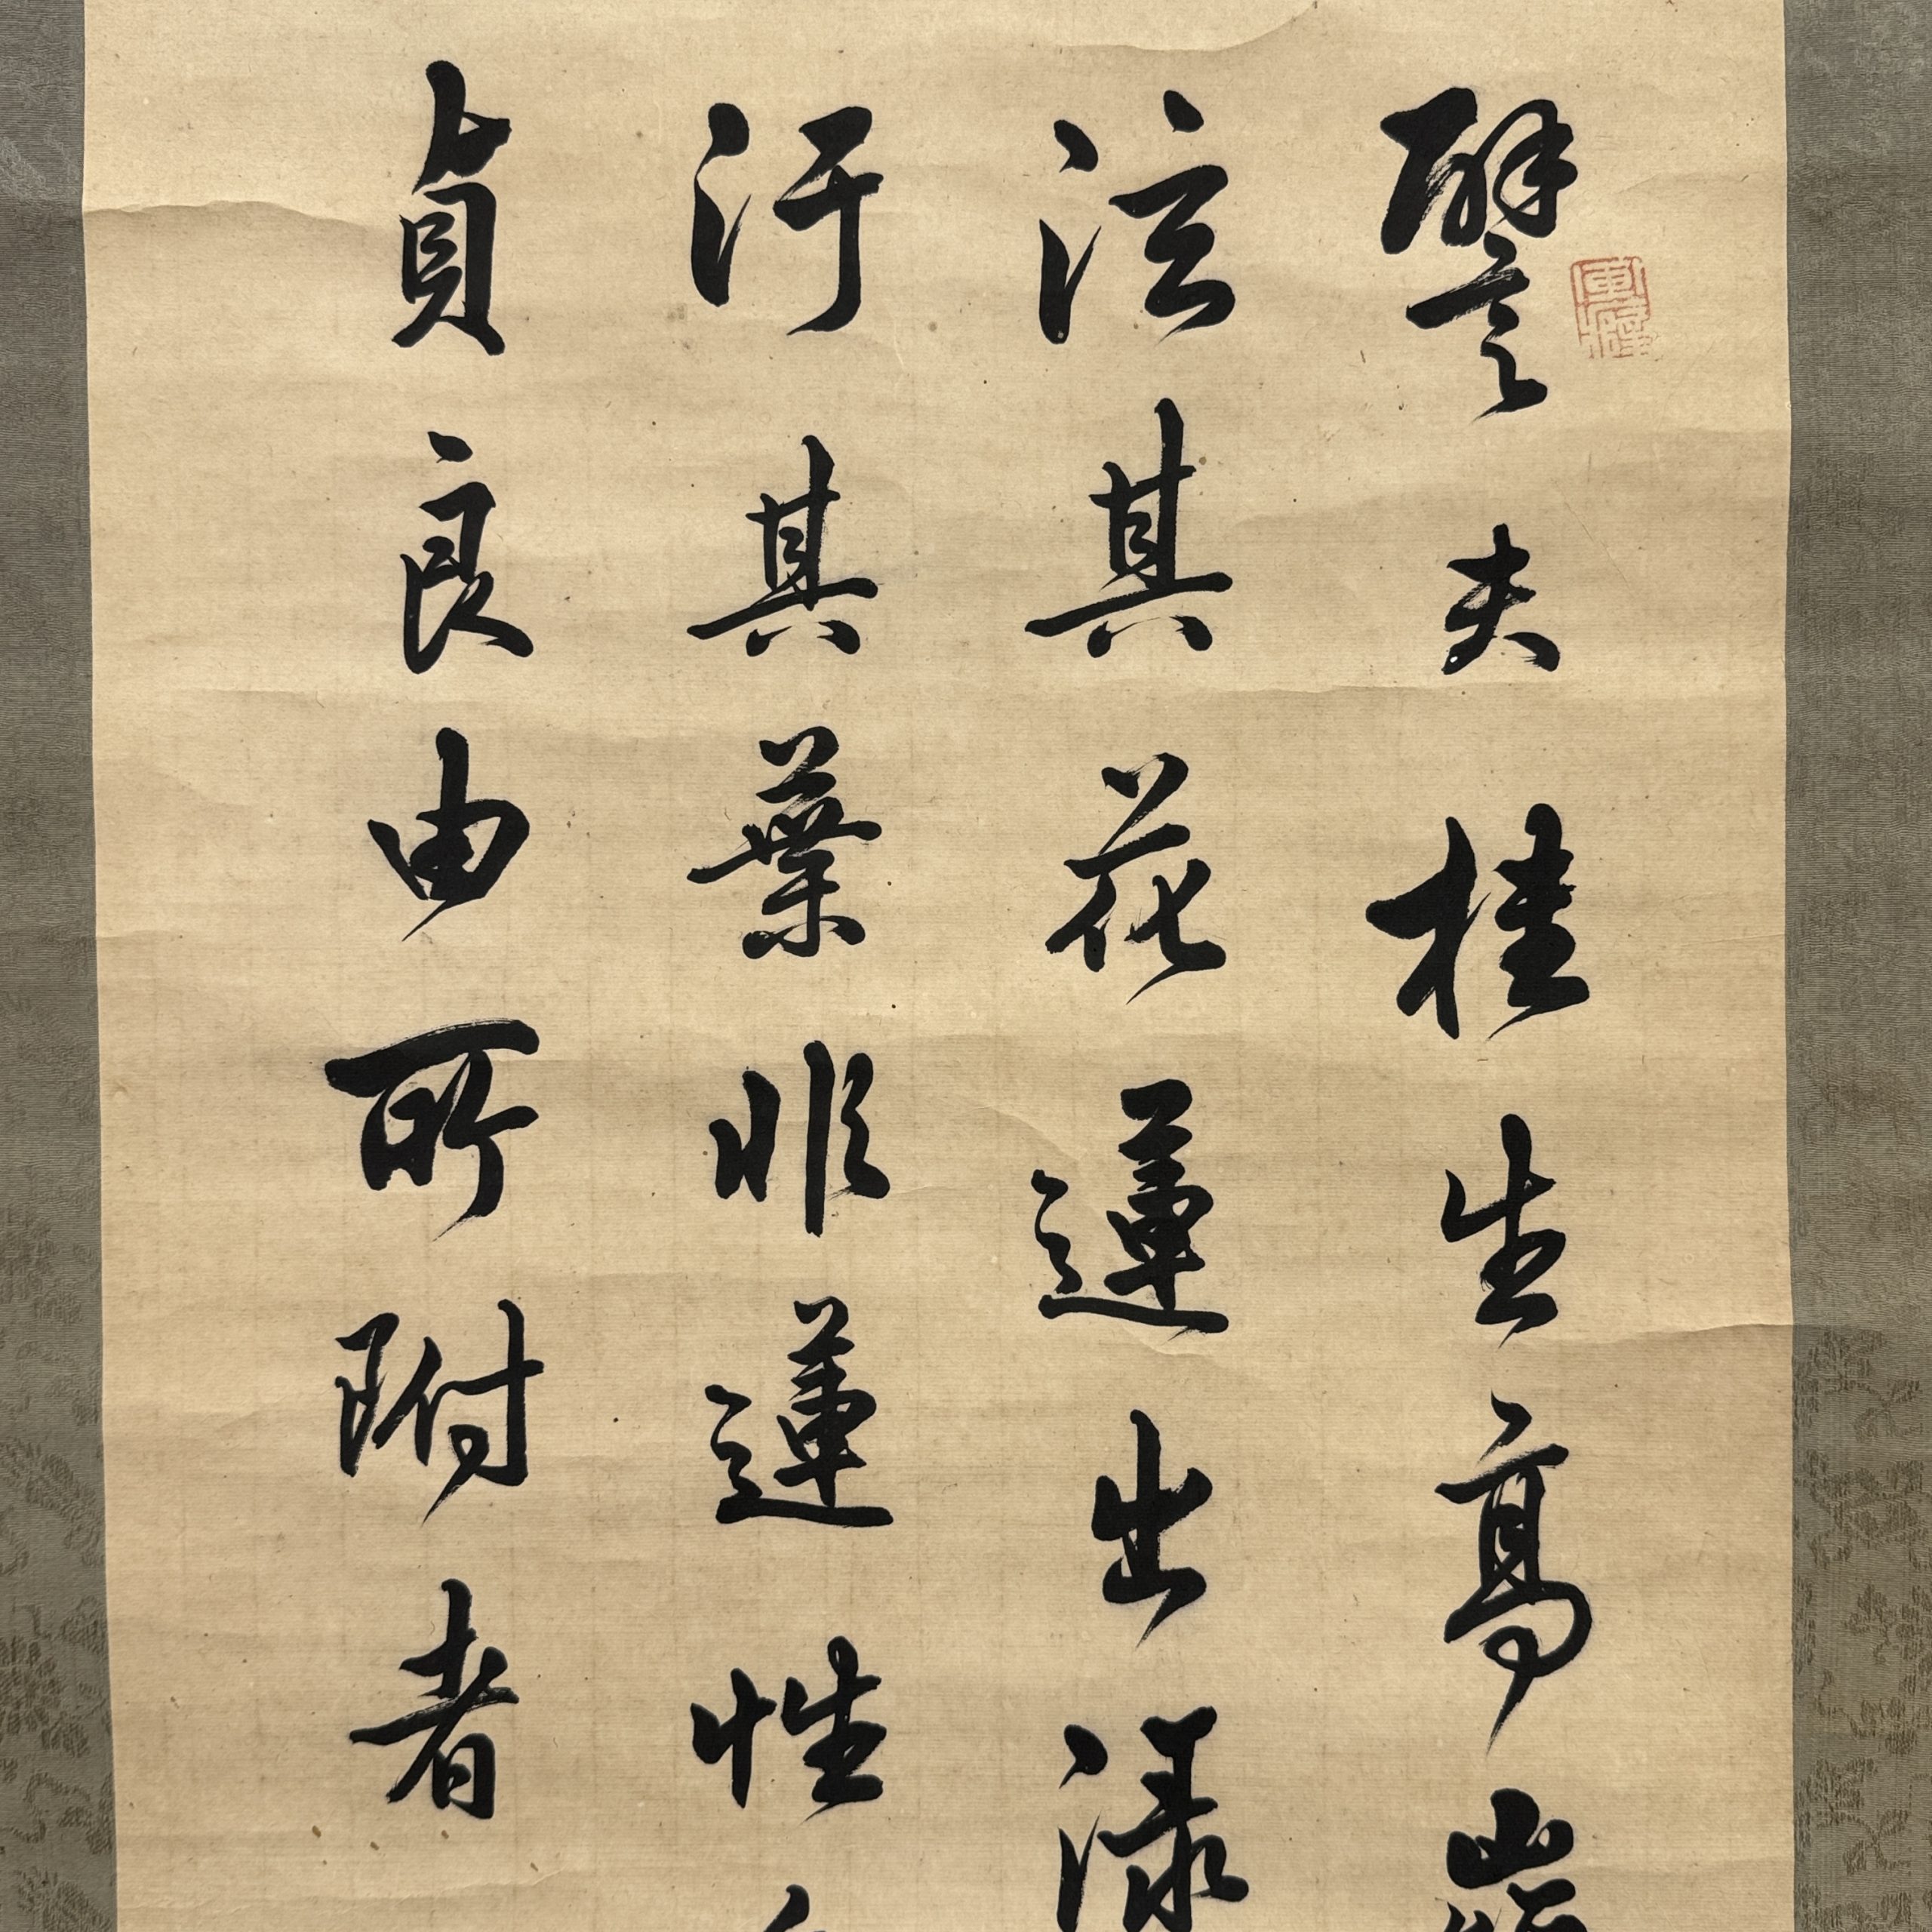 譬夫桂生高嶺
泫其花蓮出淥
汙其葉非蓮性
貞良由所附者